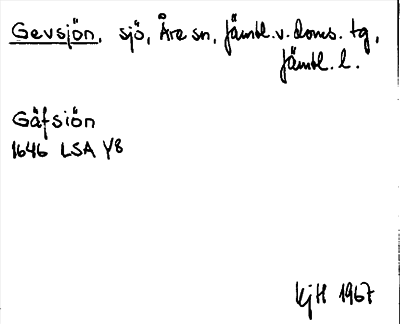 Gevsjön, sjö, Åre sn, Jämtl. v. doms. tg,
Jämtl. l.
Gäfsiön
1646 LSA Y8
KjH 1967